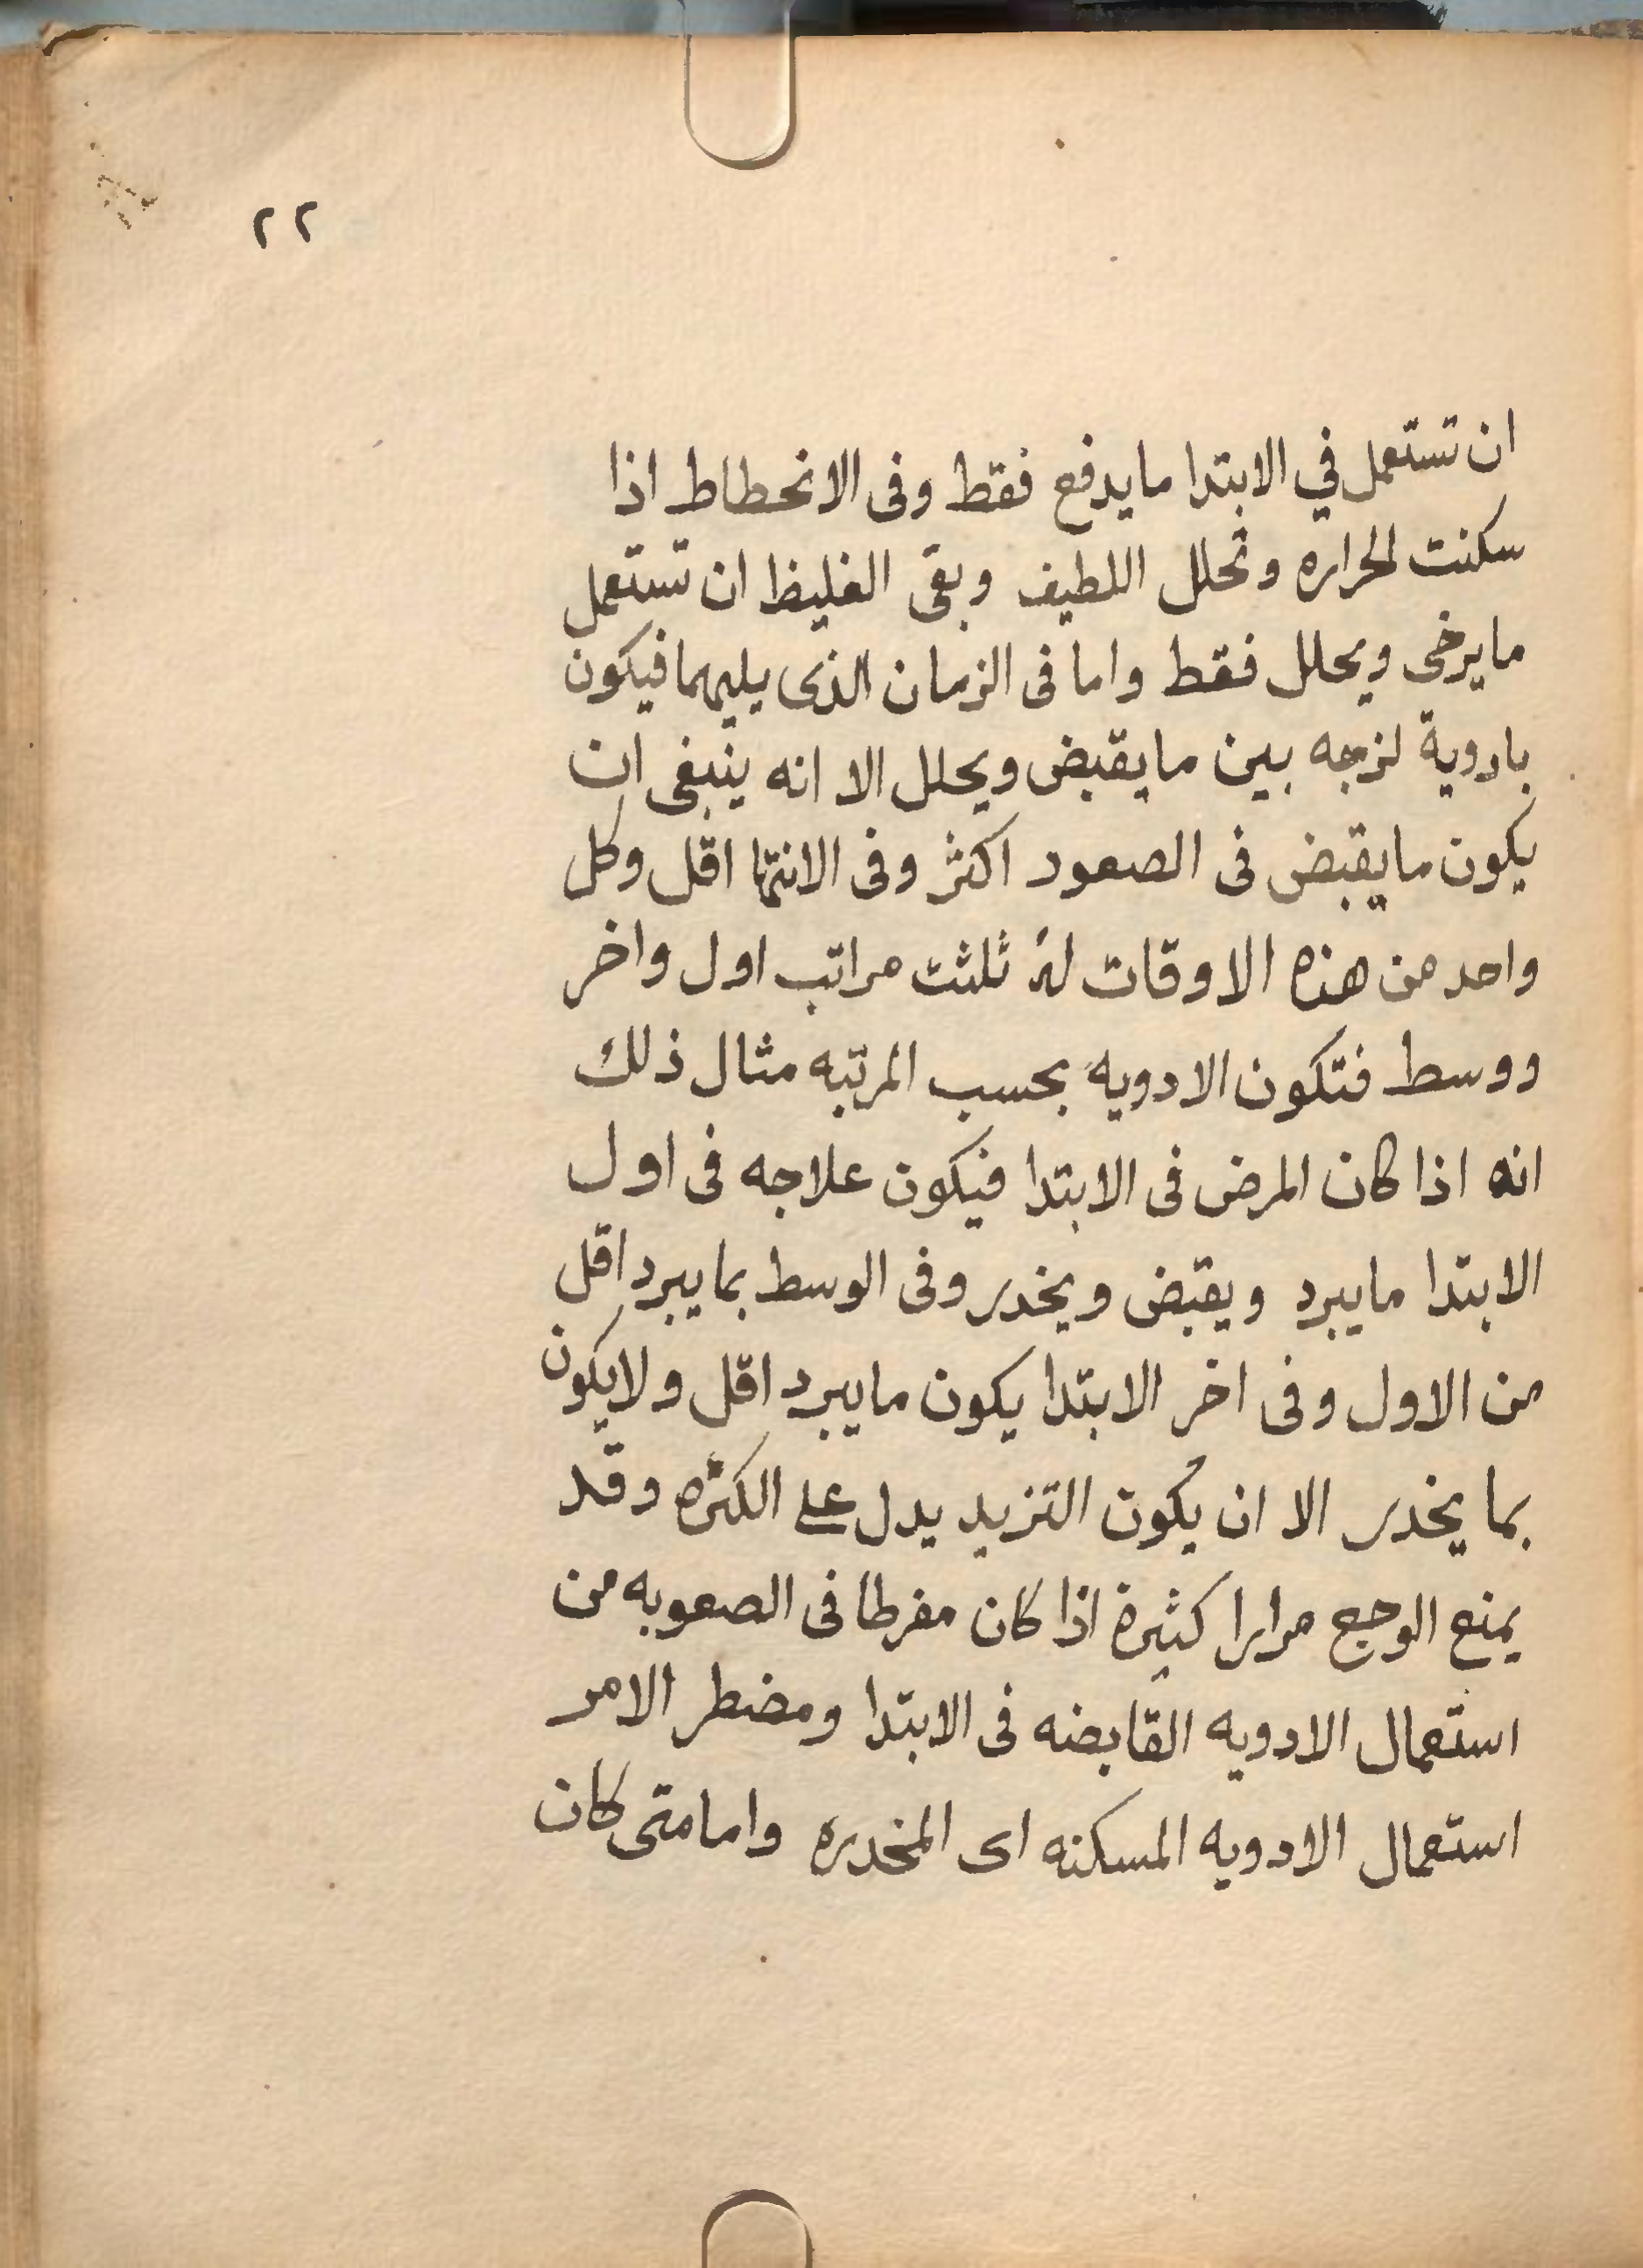 ٢٢
ان تستعمل في الابتدا ما يدفع فقط وفى الانحطاط اذا
سكنت الحراره وتحلل اللطيف وبقى الغليظ ان تستعمل
ما يرخى ويحلل فقط واما فى الزمان الذى يليهما فيكون
بادوية لزجه بين ما يقبض ويحلل الا انه ينبغى ان
يكون ما يقبض فى الصعود اكثر وفى الانتها اقل وكل
واحد من هذه الاوقات له ثلثت مراتب اول واخر
ووسط فتكون الادويه بحسب المرتبه مثال ذلك
انه اذا كان المرض فى الابتدا فيكون علاجه فى اول
الابتدا ما يبرد ويقبض ويخدر وفى الوسط بما يبرد اقل
من الاول وفى اخر الابتدا يكون ما يبرد اقل ولا يكون
بما يخدر الا ان يكون التزيد يدل على الكثره وقد
يمنع الوجع مرارا كثيرة اذا كان مفرطا فى الصعوبه من
استعمال الادويه القابضه فى الابتدا ومضطر الامر
استعمال الادويه المسكنه اى المخدره واما متى كان